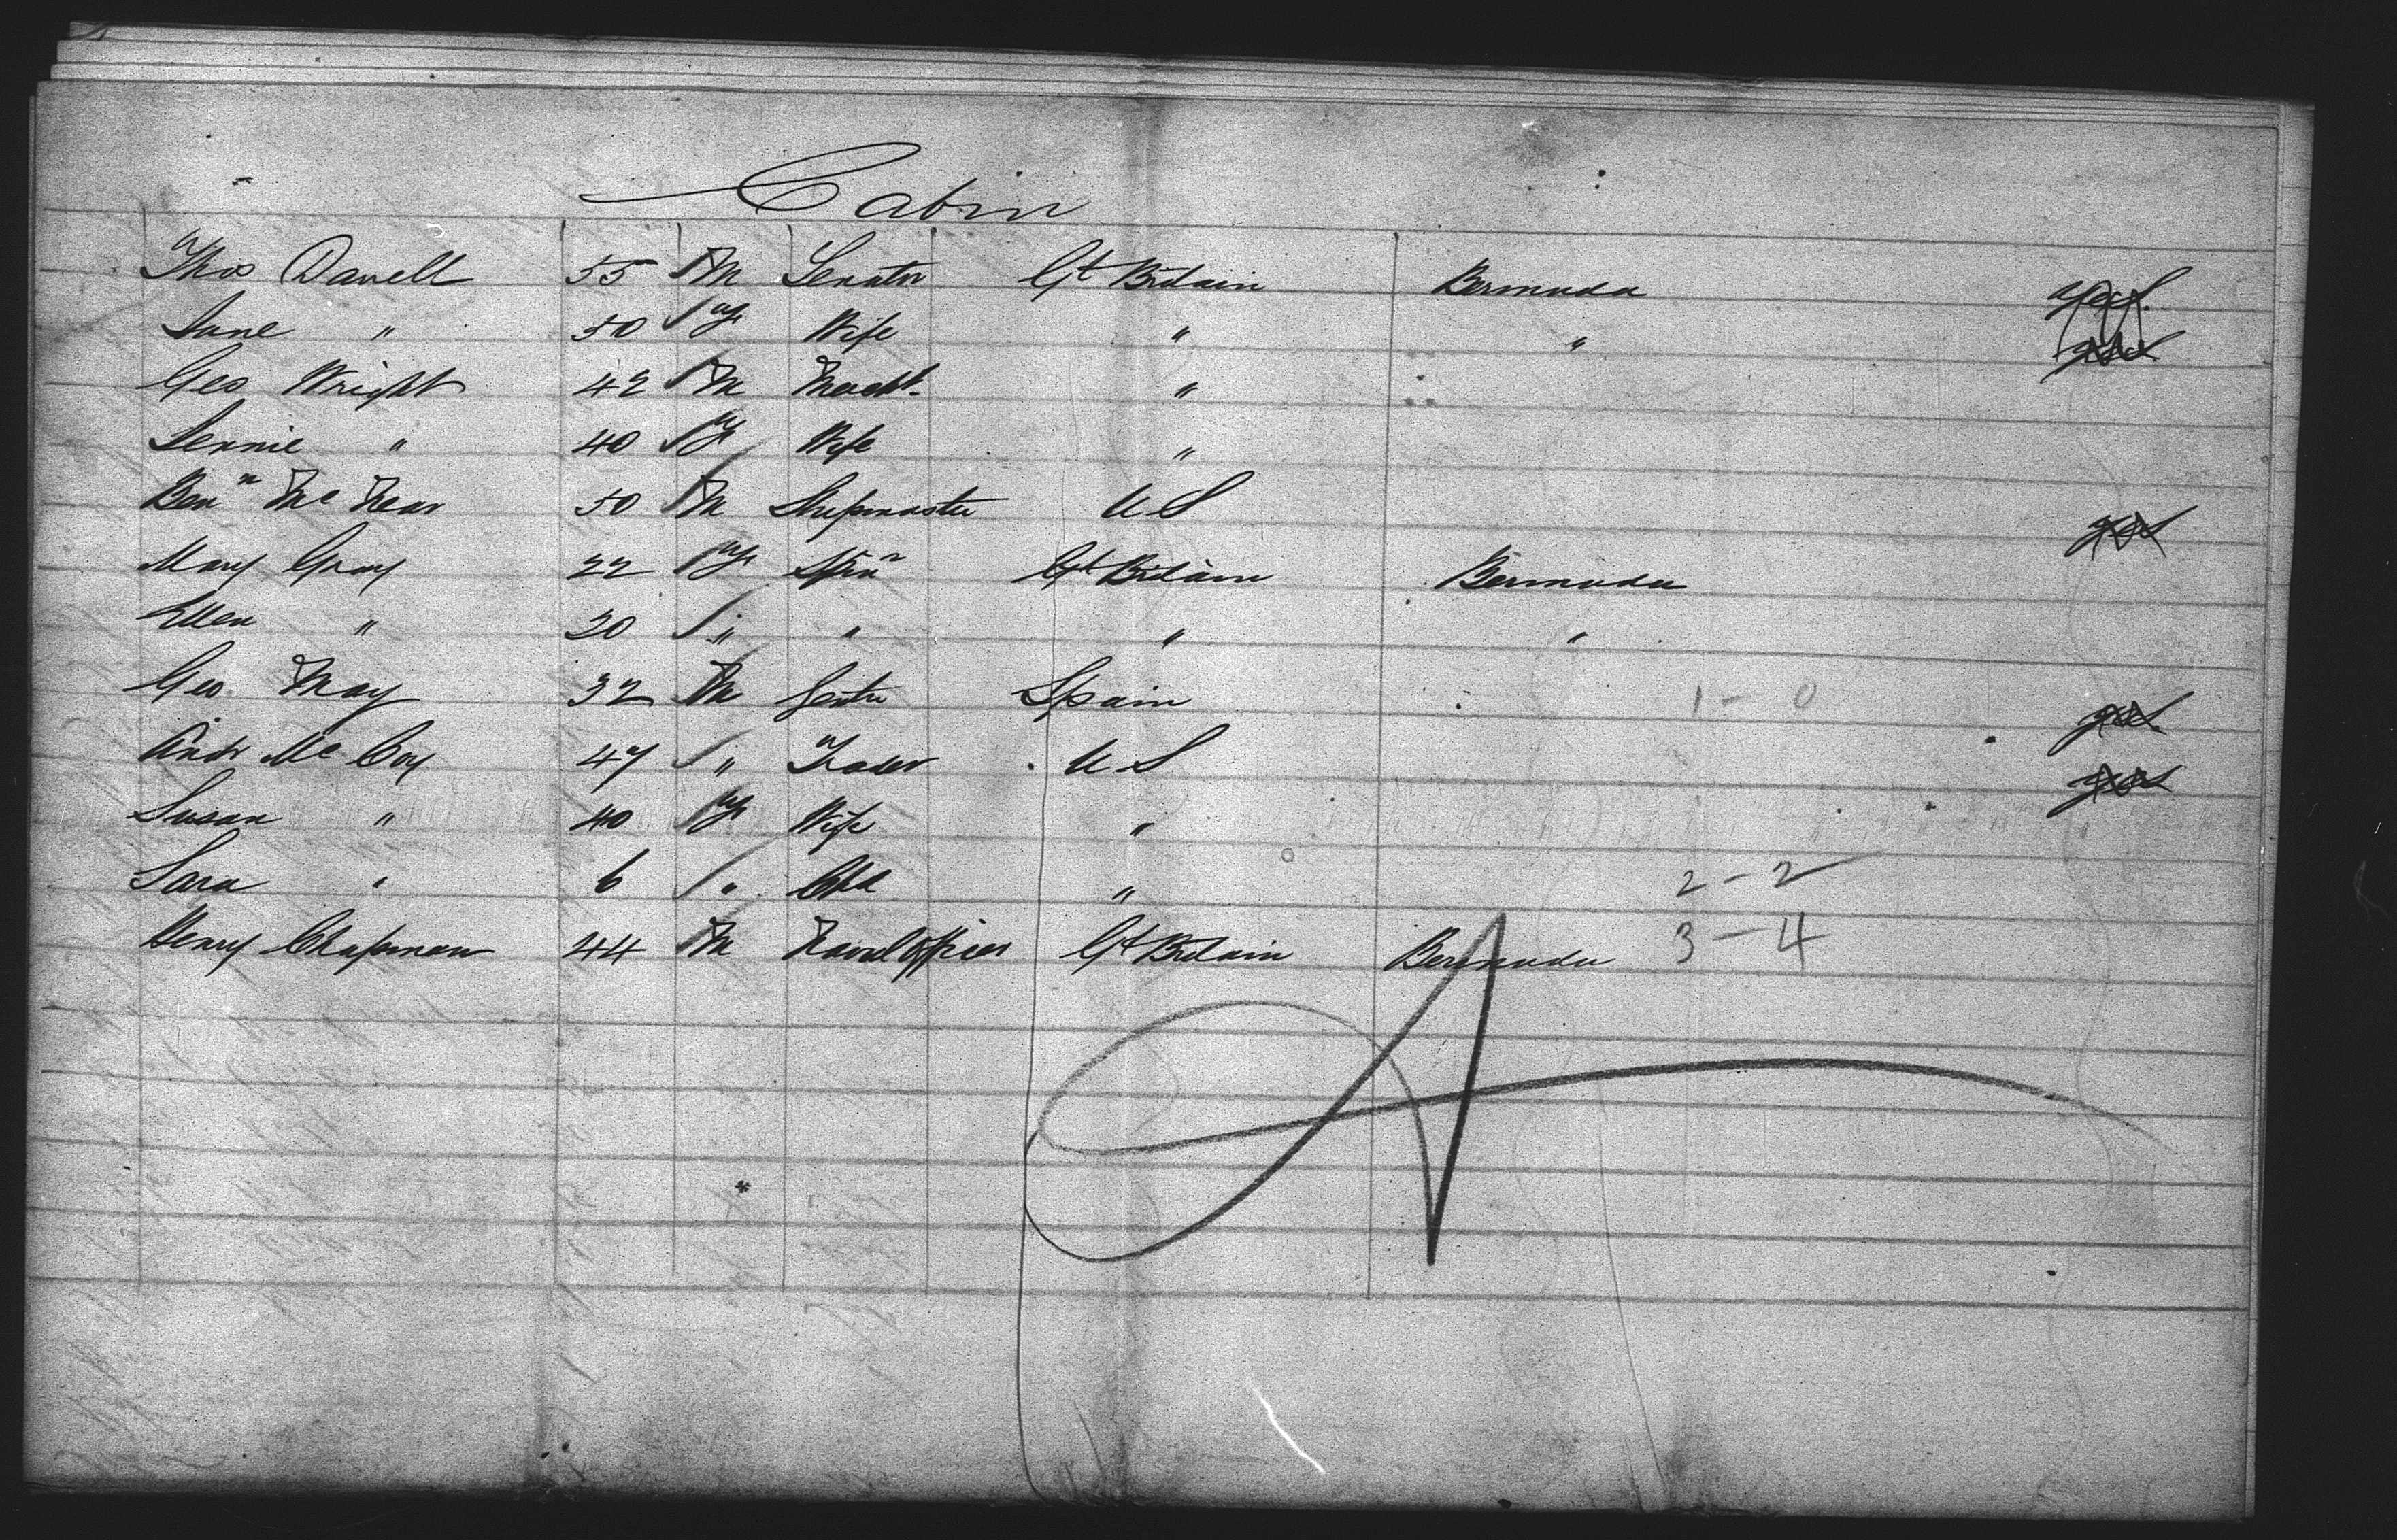 Cabin
Thos Darrell 55 M Senator Gt Britain Bermuda
Jane " 50 F Wife " "
Geo Wright 42 M Mercht "
Jennie " 40 F Wife "
Benn Mc Near 50 M Shipmaster U S
Mary Gray 22 F Spinr Gt Britain Bermuda
Ellen " 20 " " " "
Geo May 32 M Gentn Spain 1 - 0
Andr Mc Coy 47 " Trader U S
Susan " 40 F Wife "
Sara " 6 " Chd " 2 - 2
Henry Chapman 44 M Naval Officer Gt Britain Bermuda 3 - 4